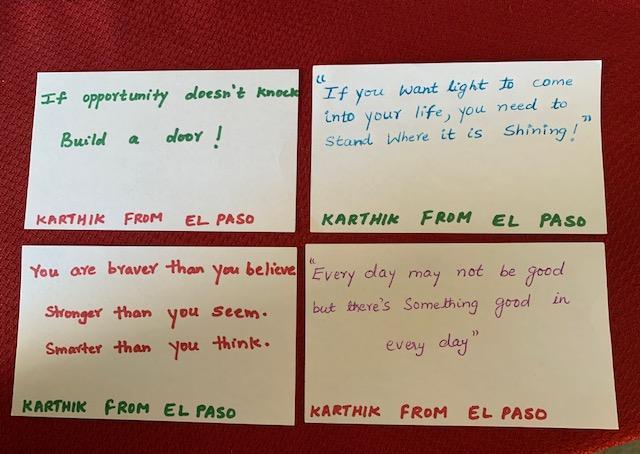 If opportunity doesn't knock
Build a door!
KARTHIK FROM EL PASO
"If you want light to come
into your life, you need to
Stand Where it is Shining!"
KARTHIK FROM EL PASO
You are braver than you believe
Stronger than you seem.
Smarter than you think.
KARTHIK FROM EL PASO
"Every day may not be good
but there's Something good in
every day"
KARTHIK FROM EL PASO